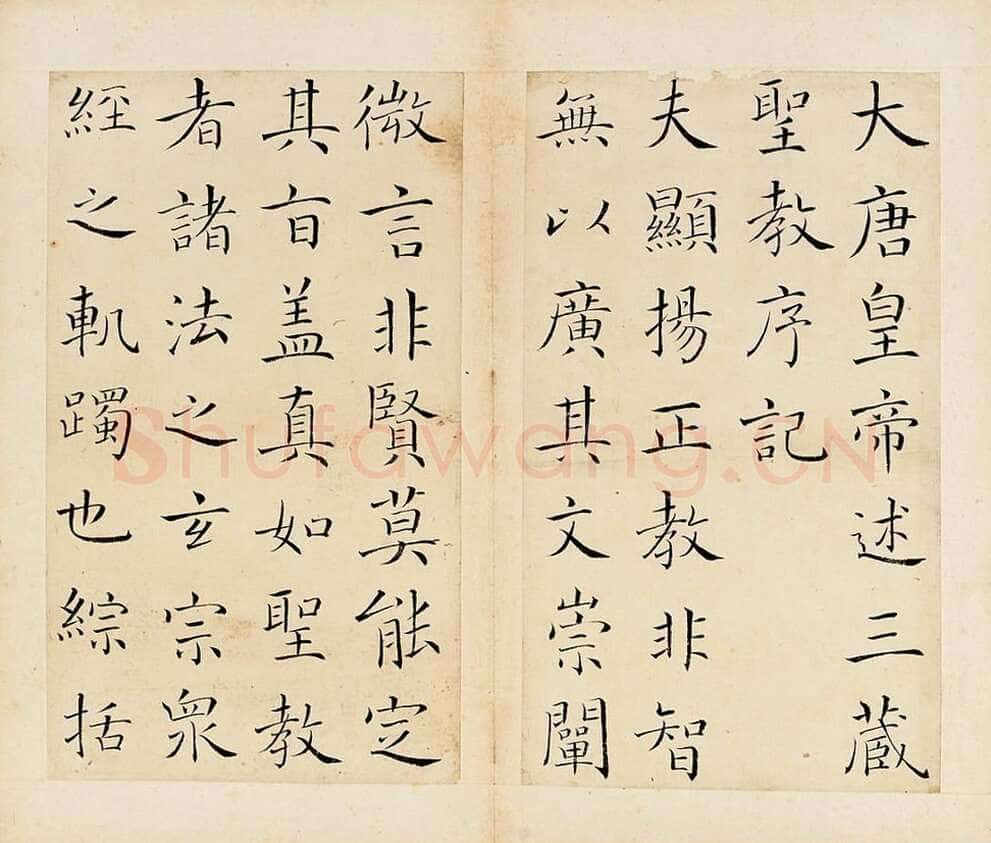 大唐皇帝述三藏
聖教序記
夫顯揚正教非智
無以廣其文崇闡
微言非賢莫能定
其旨盖真如聖教
者諸法之玄宗衆
經之軌躅也綜括
Shufawang.CN